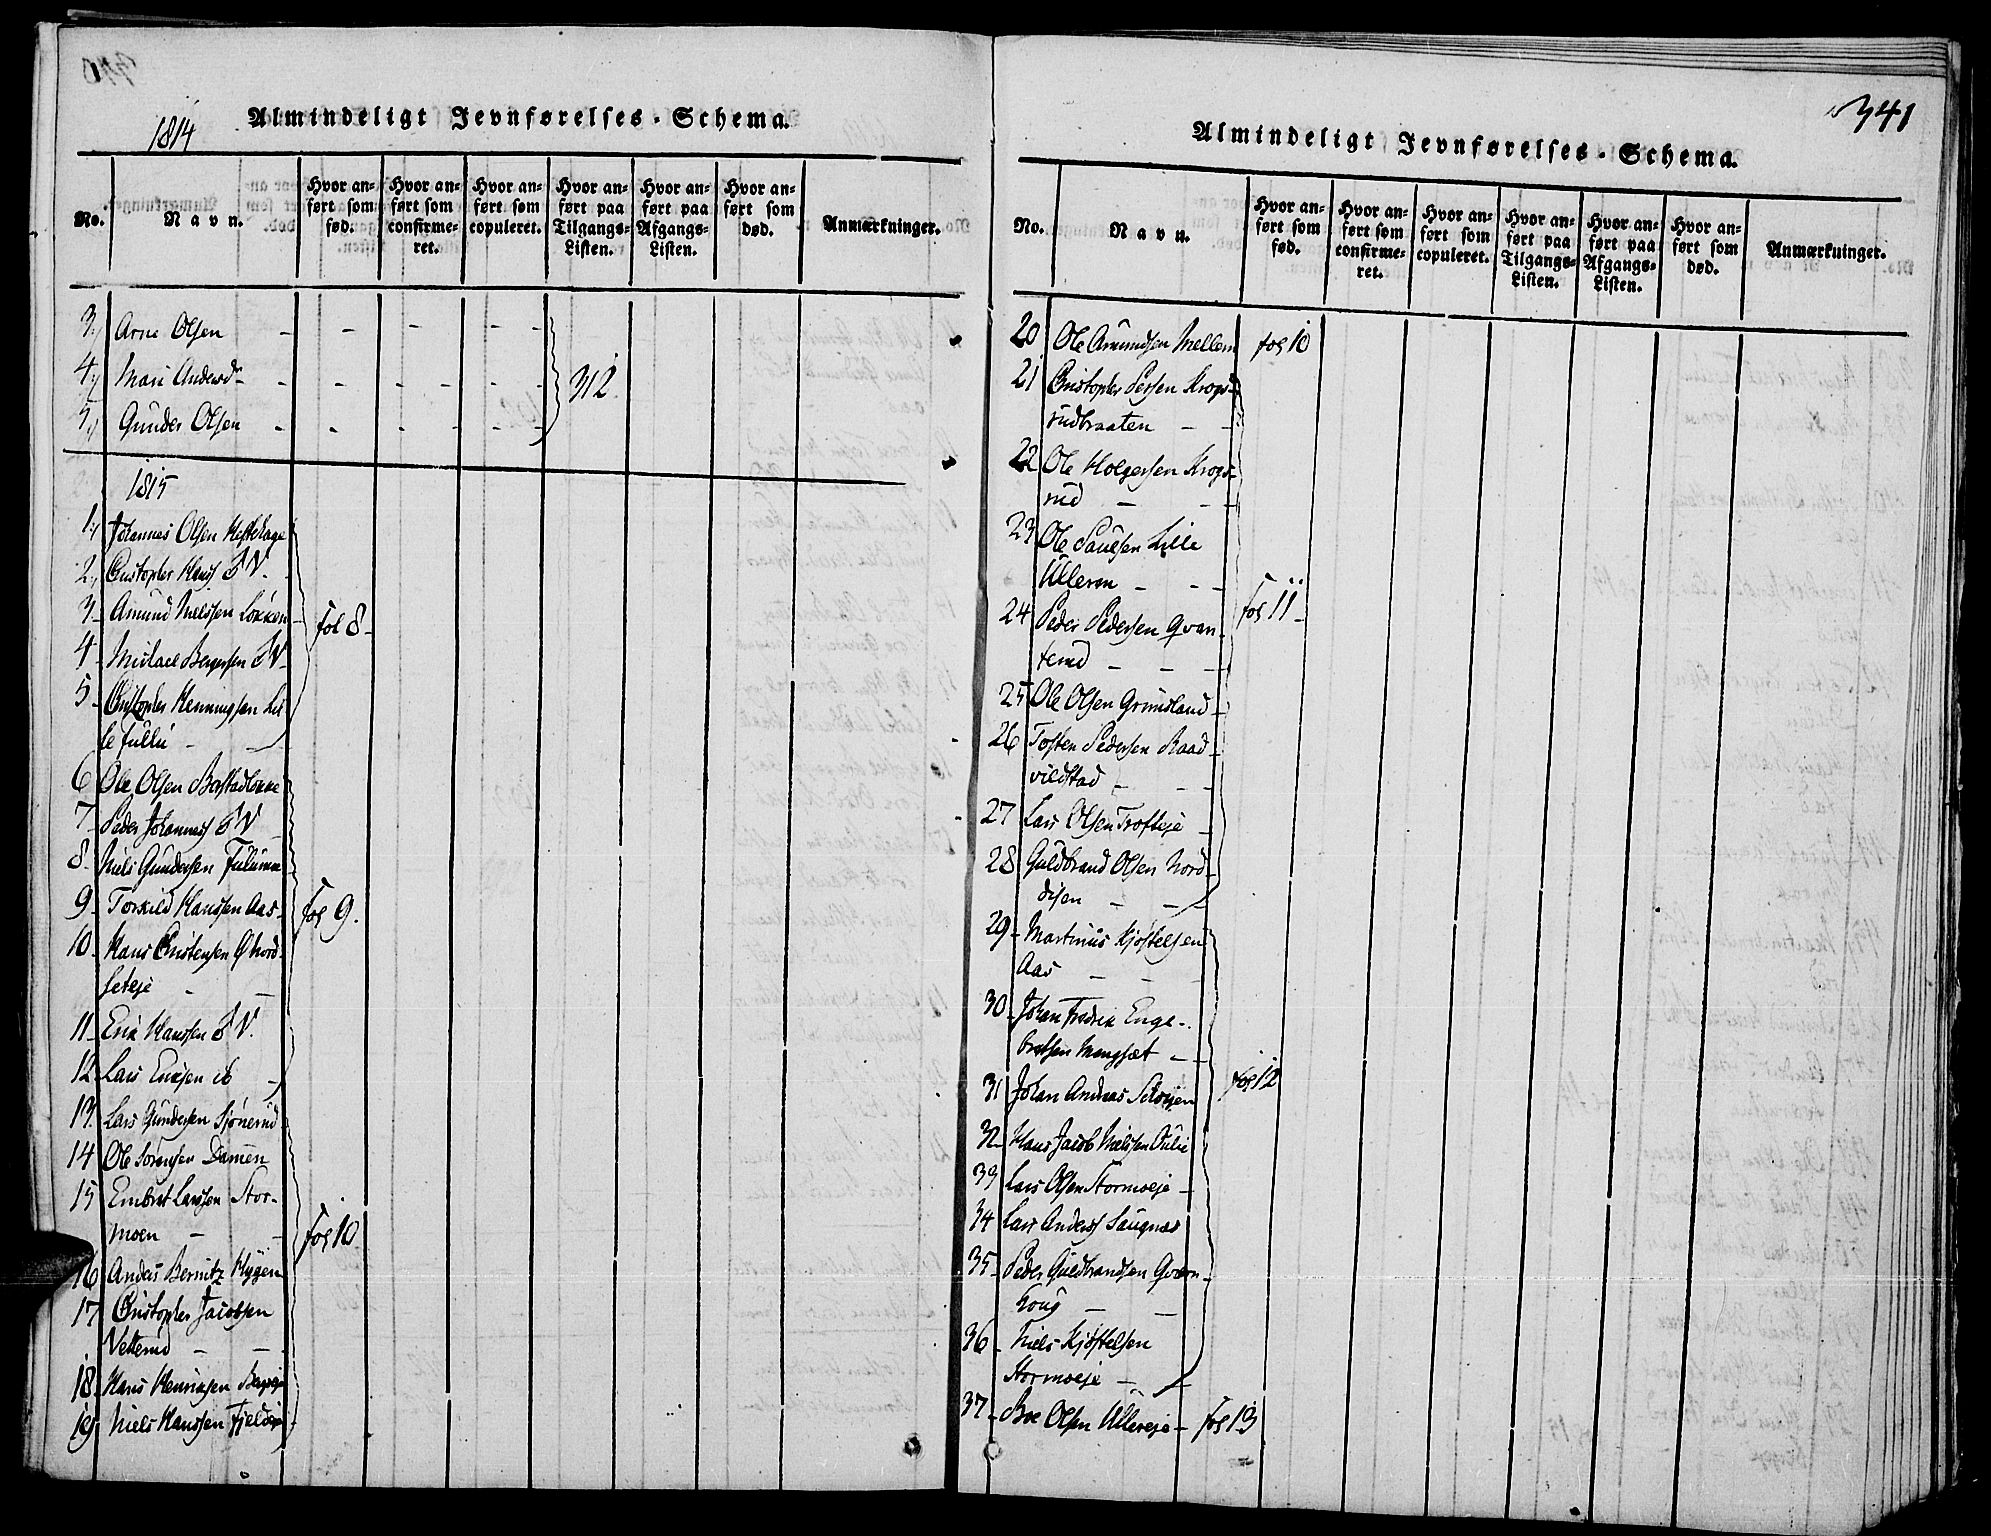 1814
Almindeligt Jevnførelses-Schema.
No.
Navn.
Hvor an-
ført som
fød.
Hvor an-
ført som
confirme-
ret.
Hvor an-
ført som
copuleret.
Hvor an-
ført paa
Tilgangs-
Listen.
Hvor an-
ført paa
Afgangs-
Listen.
Hvor an-
ført som
død.
Anmærkninger.
3, Arne Olsen - - - - -
4, Mari Andersd - - - - - - 312.
5, Gunder Olsen - - - - - -
1815
1, Johannes Olsen Hestehage
2, Cristopher Hans S N.
3- Amund Nielssen Løkken - fol 8-
4- Michael Bergersen S N-
5- Christopher Henningsen Lil
le fulu -
6 Ole Olsen Bastadløkke
7- Peder Johanness S N
8- Niels Gundersen
9- Torkild Hanssen Aas- fol 9.
10- Hans Cristensen Ø Nord-
seteje - -
11- Erik Hanssen S N.
12- Lars Eriksen ib -
13. Lars Gundersen Sjønerud
14 Ole Sørensen Damen
15 Embret Larssen Stor-
moen - - fol 10
16 Anders Bernitz Hygen
17 Christopher Jacobsen
Vetterud - -
18- Hans Henriksen
19- Niels Hanssen Fjeldeje
341
Almindeligt Jevnførelses-Schema.
No.
Navn.
Hvor an-
ført som
fød.
Hvor an-
ført som
confirme-
ret.
Hvor an-
ført som
copuleret.
Hvor an-
ført paa
Tilgangs-
Listen.
Hvor an-
ført paa
Afgangs-
Listen.
Hvor an-
ført som
død.
Anmærkninger.
20 Ole Amundsen Mellem fol 10
21 Cristopher Persen Krogs-
rudbraaten - -
22 Ole Holgersen Krogs-
rud - - -
23 Ole Paulsen Lille
Ulleren - - -
24 Peder Pedersen Qvan- fol 11-
terud - - -
25 Ole Olsen Grimsland -
26 Tosten Pedersen Raad-
vildstad - - -
27 Lars Olsen Trofteje -
28 Guldbrand Olsen Nord-
disen - - -
29- Martinus Kjøstelsen
Aas - - -
30- Johan Fredrik Enge-
bretsen Mengsæt - -
31 Johan Andreas fol 12
32- Hans Jacob Nielssen Julu
33 Lars Olsen Stormoeje -
34 Lars Anderss Saugnæs
35- Peder Guldbrandsen Qværn-
houg - -
36- Niels Kjøstelsen
Stormoeje - -
37- Boe Olsen Ullereje - fol 13